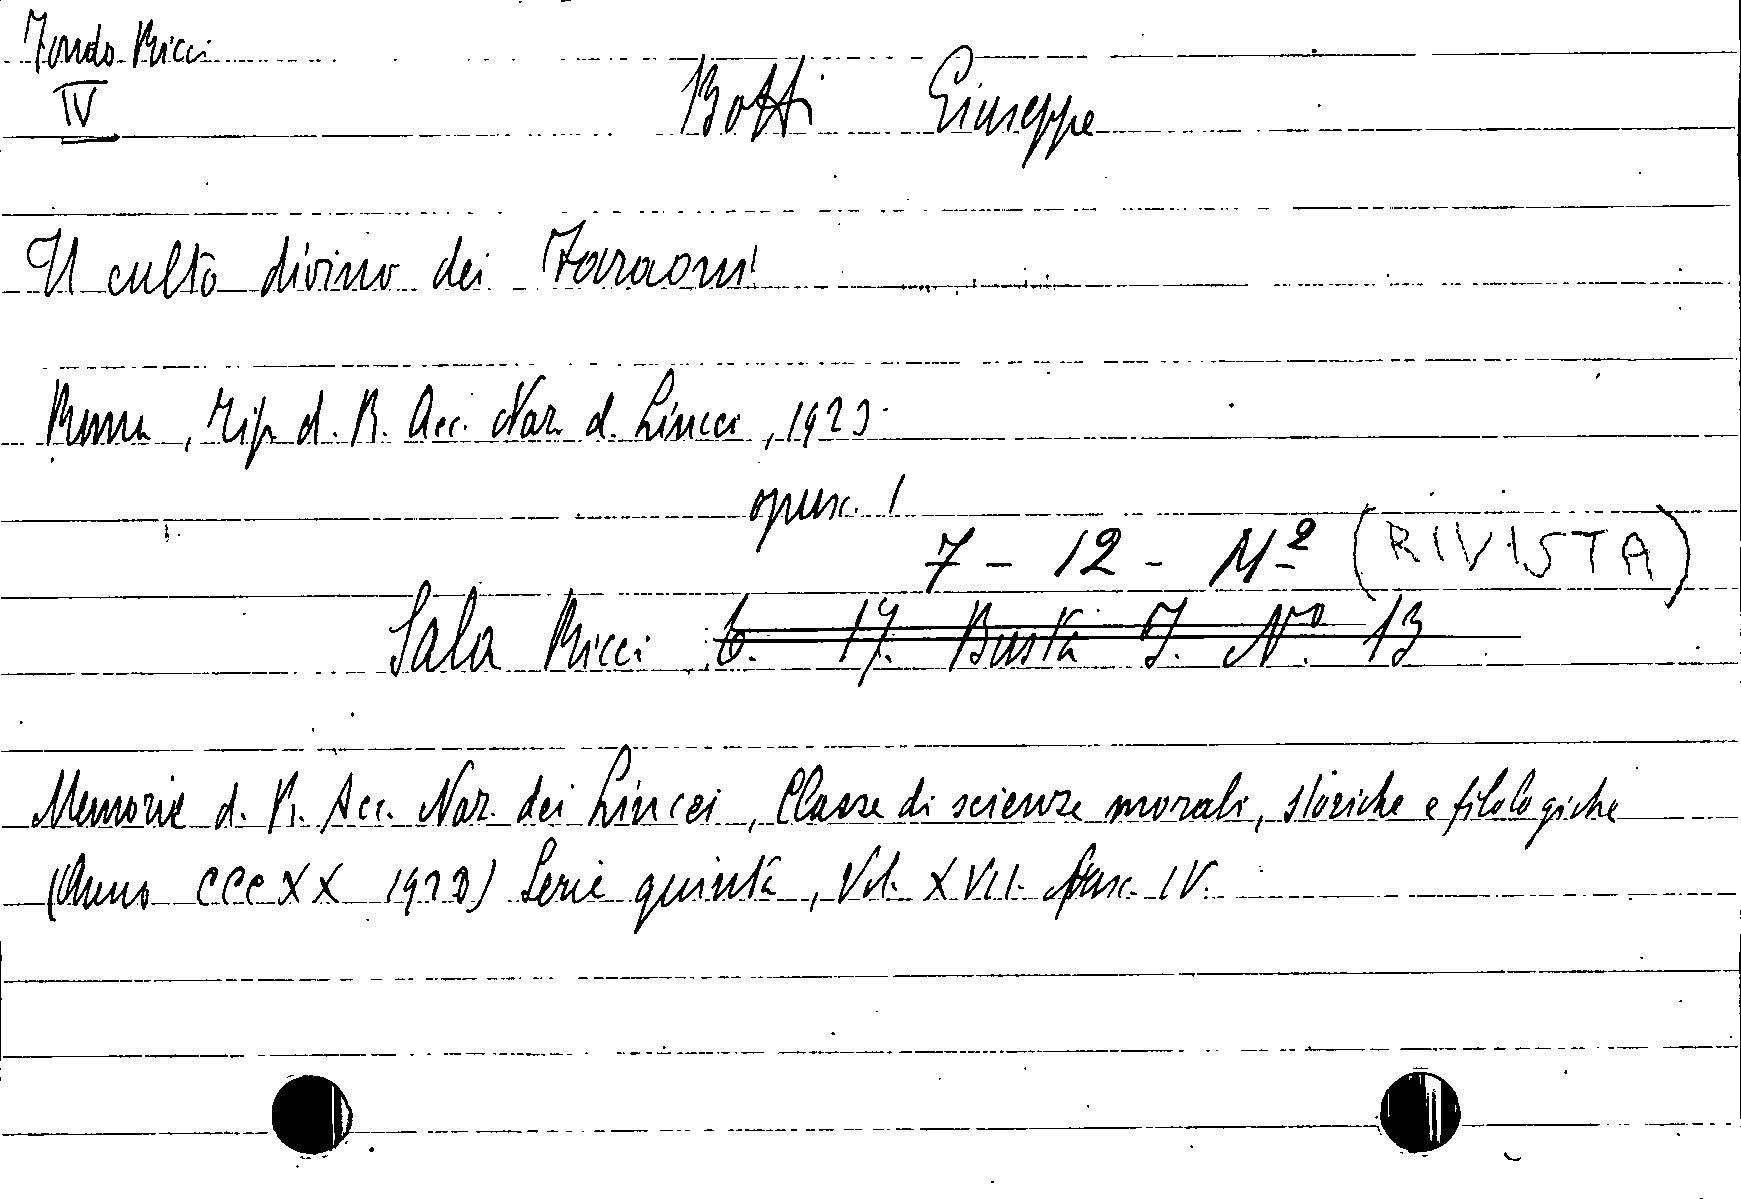 Fondo Ricci
IV
Botti Giuseppe
Il culto divino dei Faraoni
Roma, Tip. d. R. Acc. Naz. d. Lincei, 1923.
opusc. 1
7 - 12 - Mº (RIVISTA)
Sala Ricci 6. 17. Busta I. Nº. 13
Memorie d. R. Acc. Naz. dei Lincei, Classe di scienze morali, storiche e filologiche
(Anno CCCXX 1923) Serie quinta, Vol. XVII. fasc. IV.